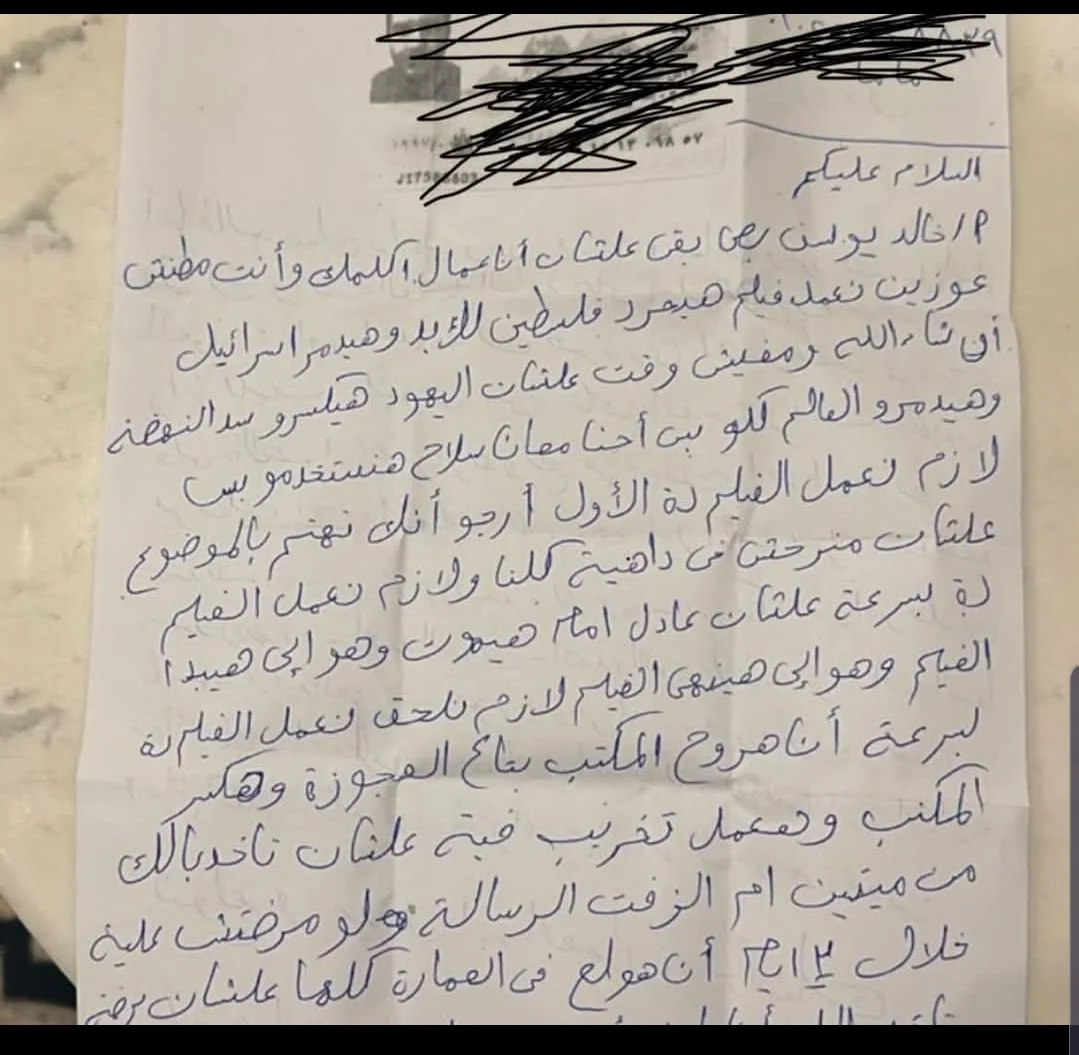 ٨٨٣٩
١٣٠٩٨٥٧
السلام عليكم
م/ خالد يوسف بص بقى علشان أنا عمال اكلمك وأنت مطنش
عوزين نعمل فيلم هيحرر فلسطين للأبد وهيدمر اسرائيل
أن شاء الله ومفيش وقت علشان اليهود هيكسرو سد النهضة
وهيدمرو العالم كلو بس أحنا معانا سلاح هنستخدمو بس
لازم نعمل الفيلم دة الأول أرجو أنك تهتم بالموضوع
علشان منرحش فى داهية كلنا ولازم نعمل الفيلم
دة بسرعة علشان عادل امام هيموت وهو إلى هيبدأ
الفيلم وهو إلى هينهى الفيلم لازم نلحق نعمل الفيلم دة
بسرعة أنا هروح المكتب بتاع العجوزة وهكسر
المكتب وهعمل تخريب فية علشان تاخد بالك
من ميتين ام الزفت الرسالة ولو مردتش علية
خلال ٣ ايام أنا هولع فى العمارة كلها علشان